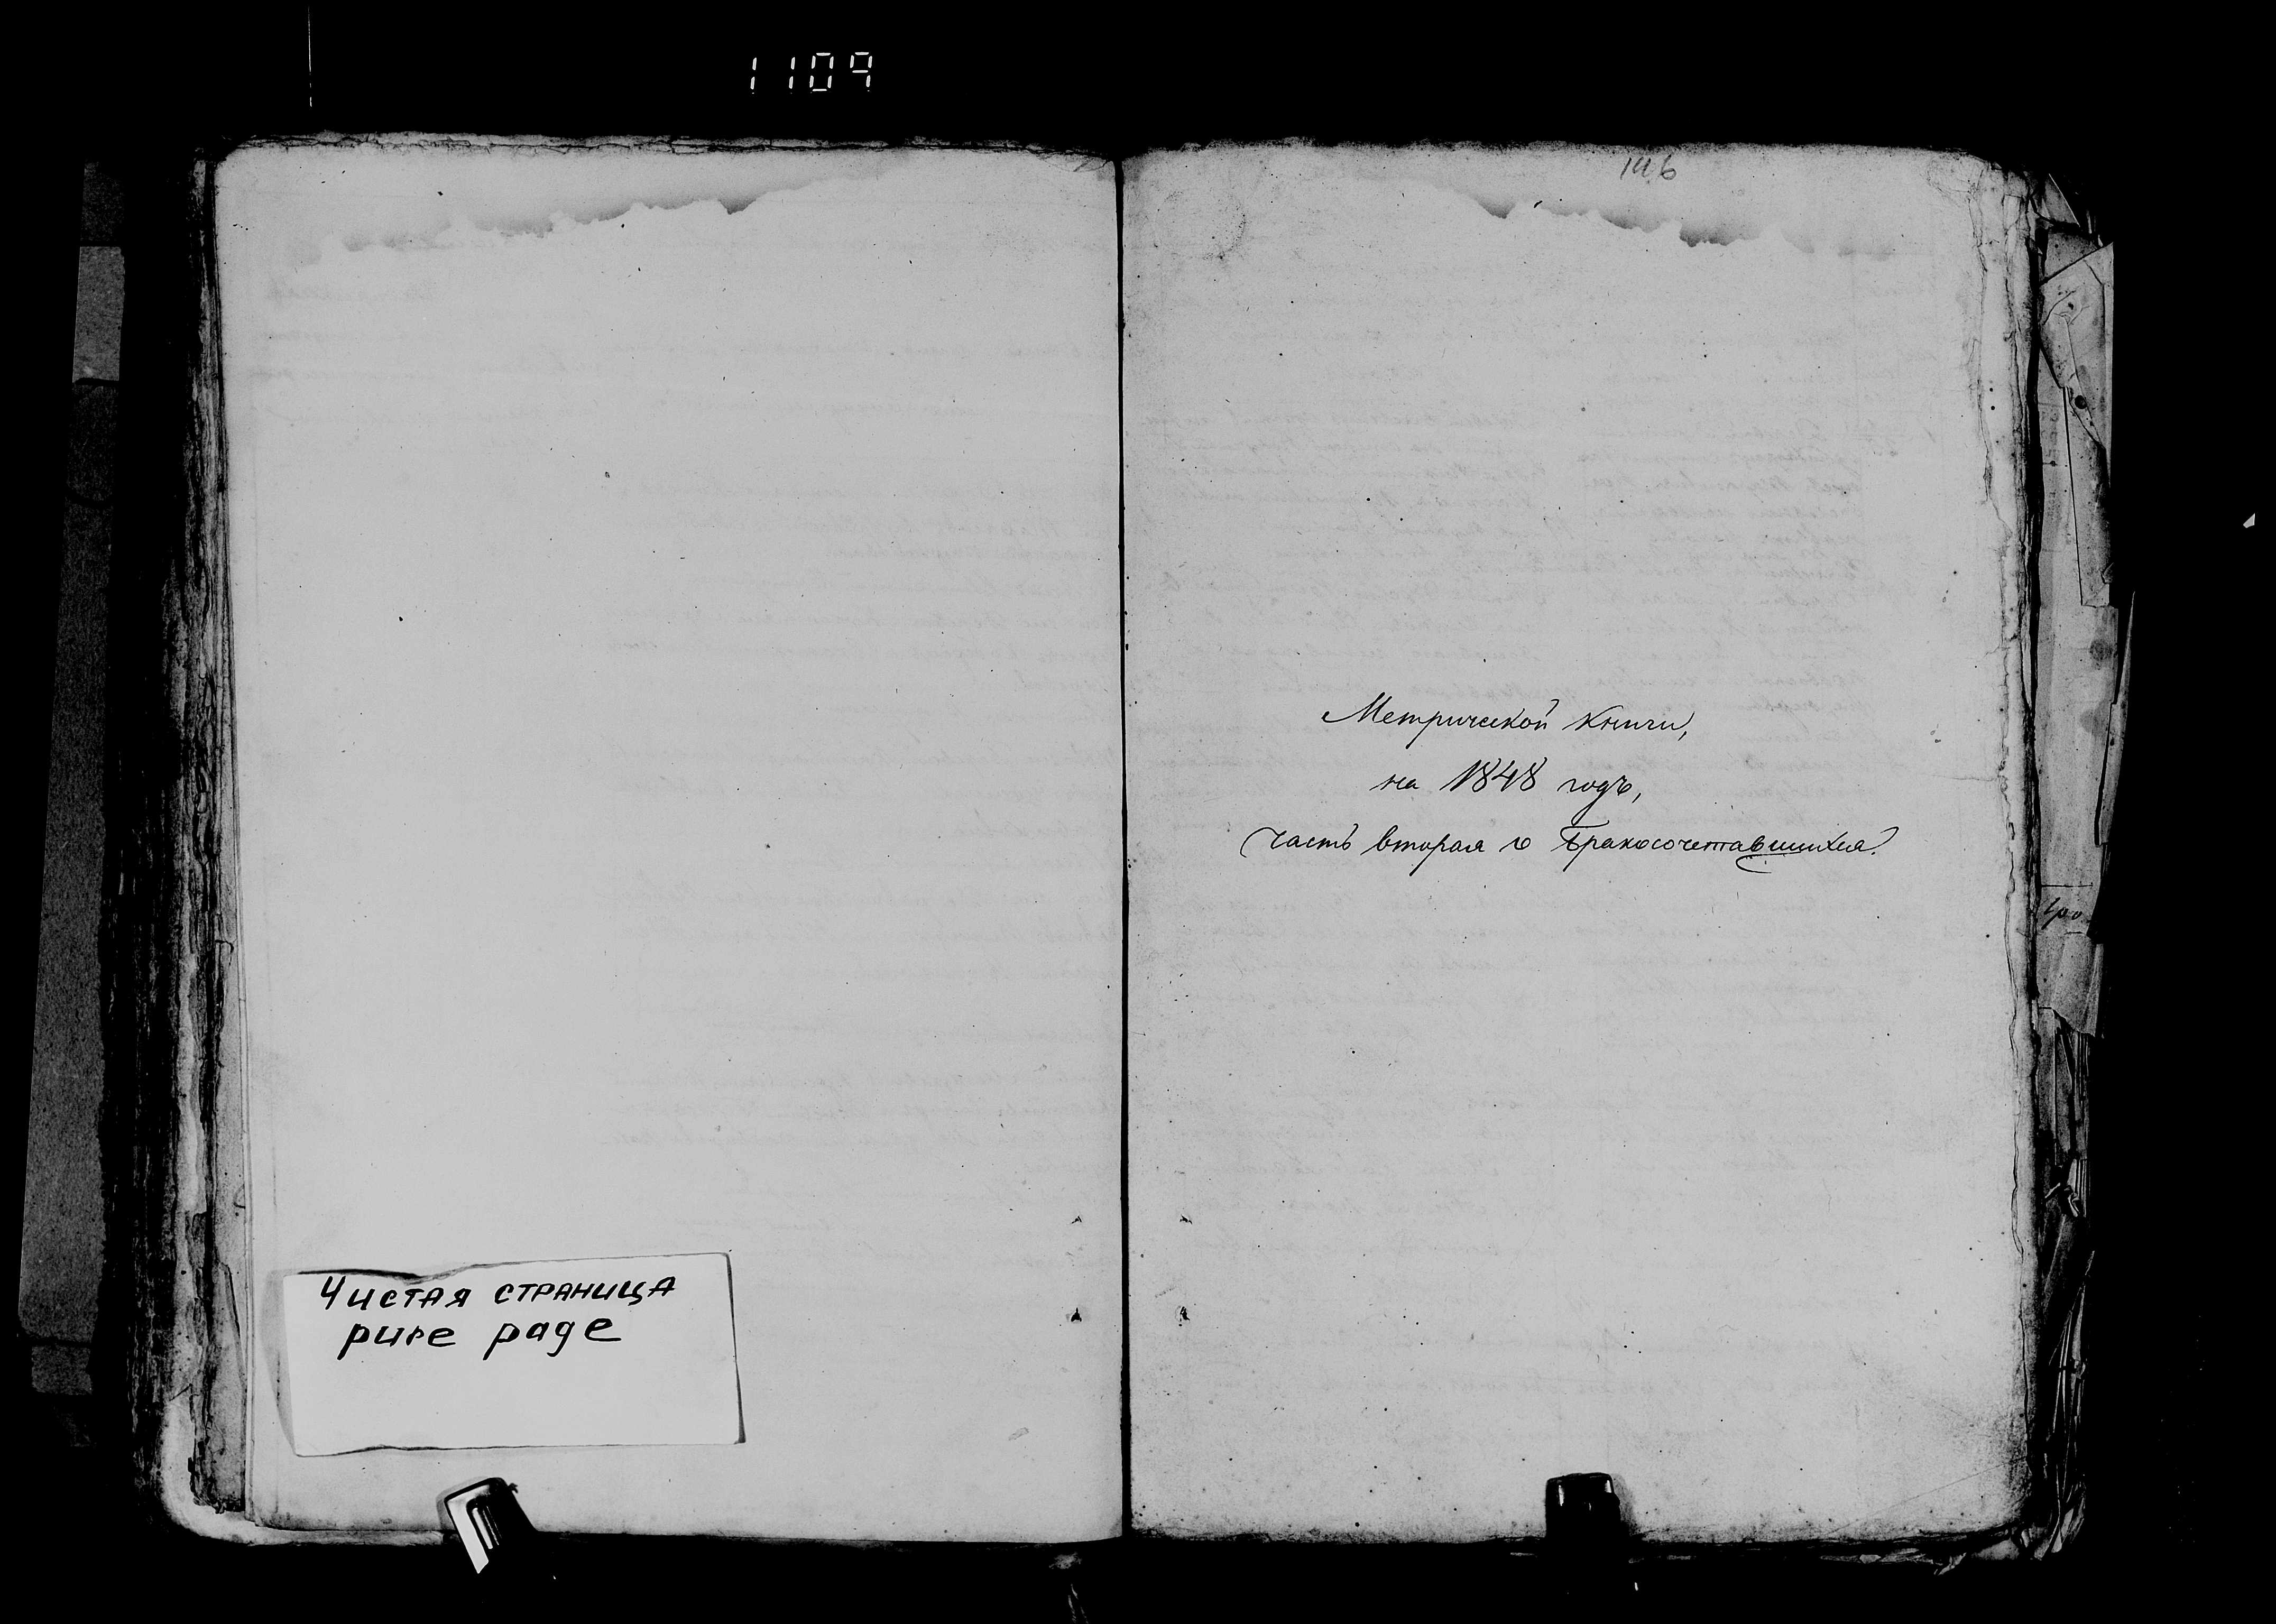 1109
146
Метрической книги,
на 1848 годъ,
часть вторая о бракосочетавшихся.
Чистая страница
pure page